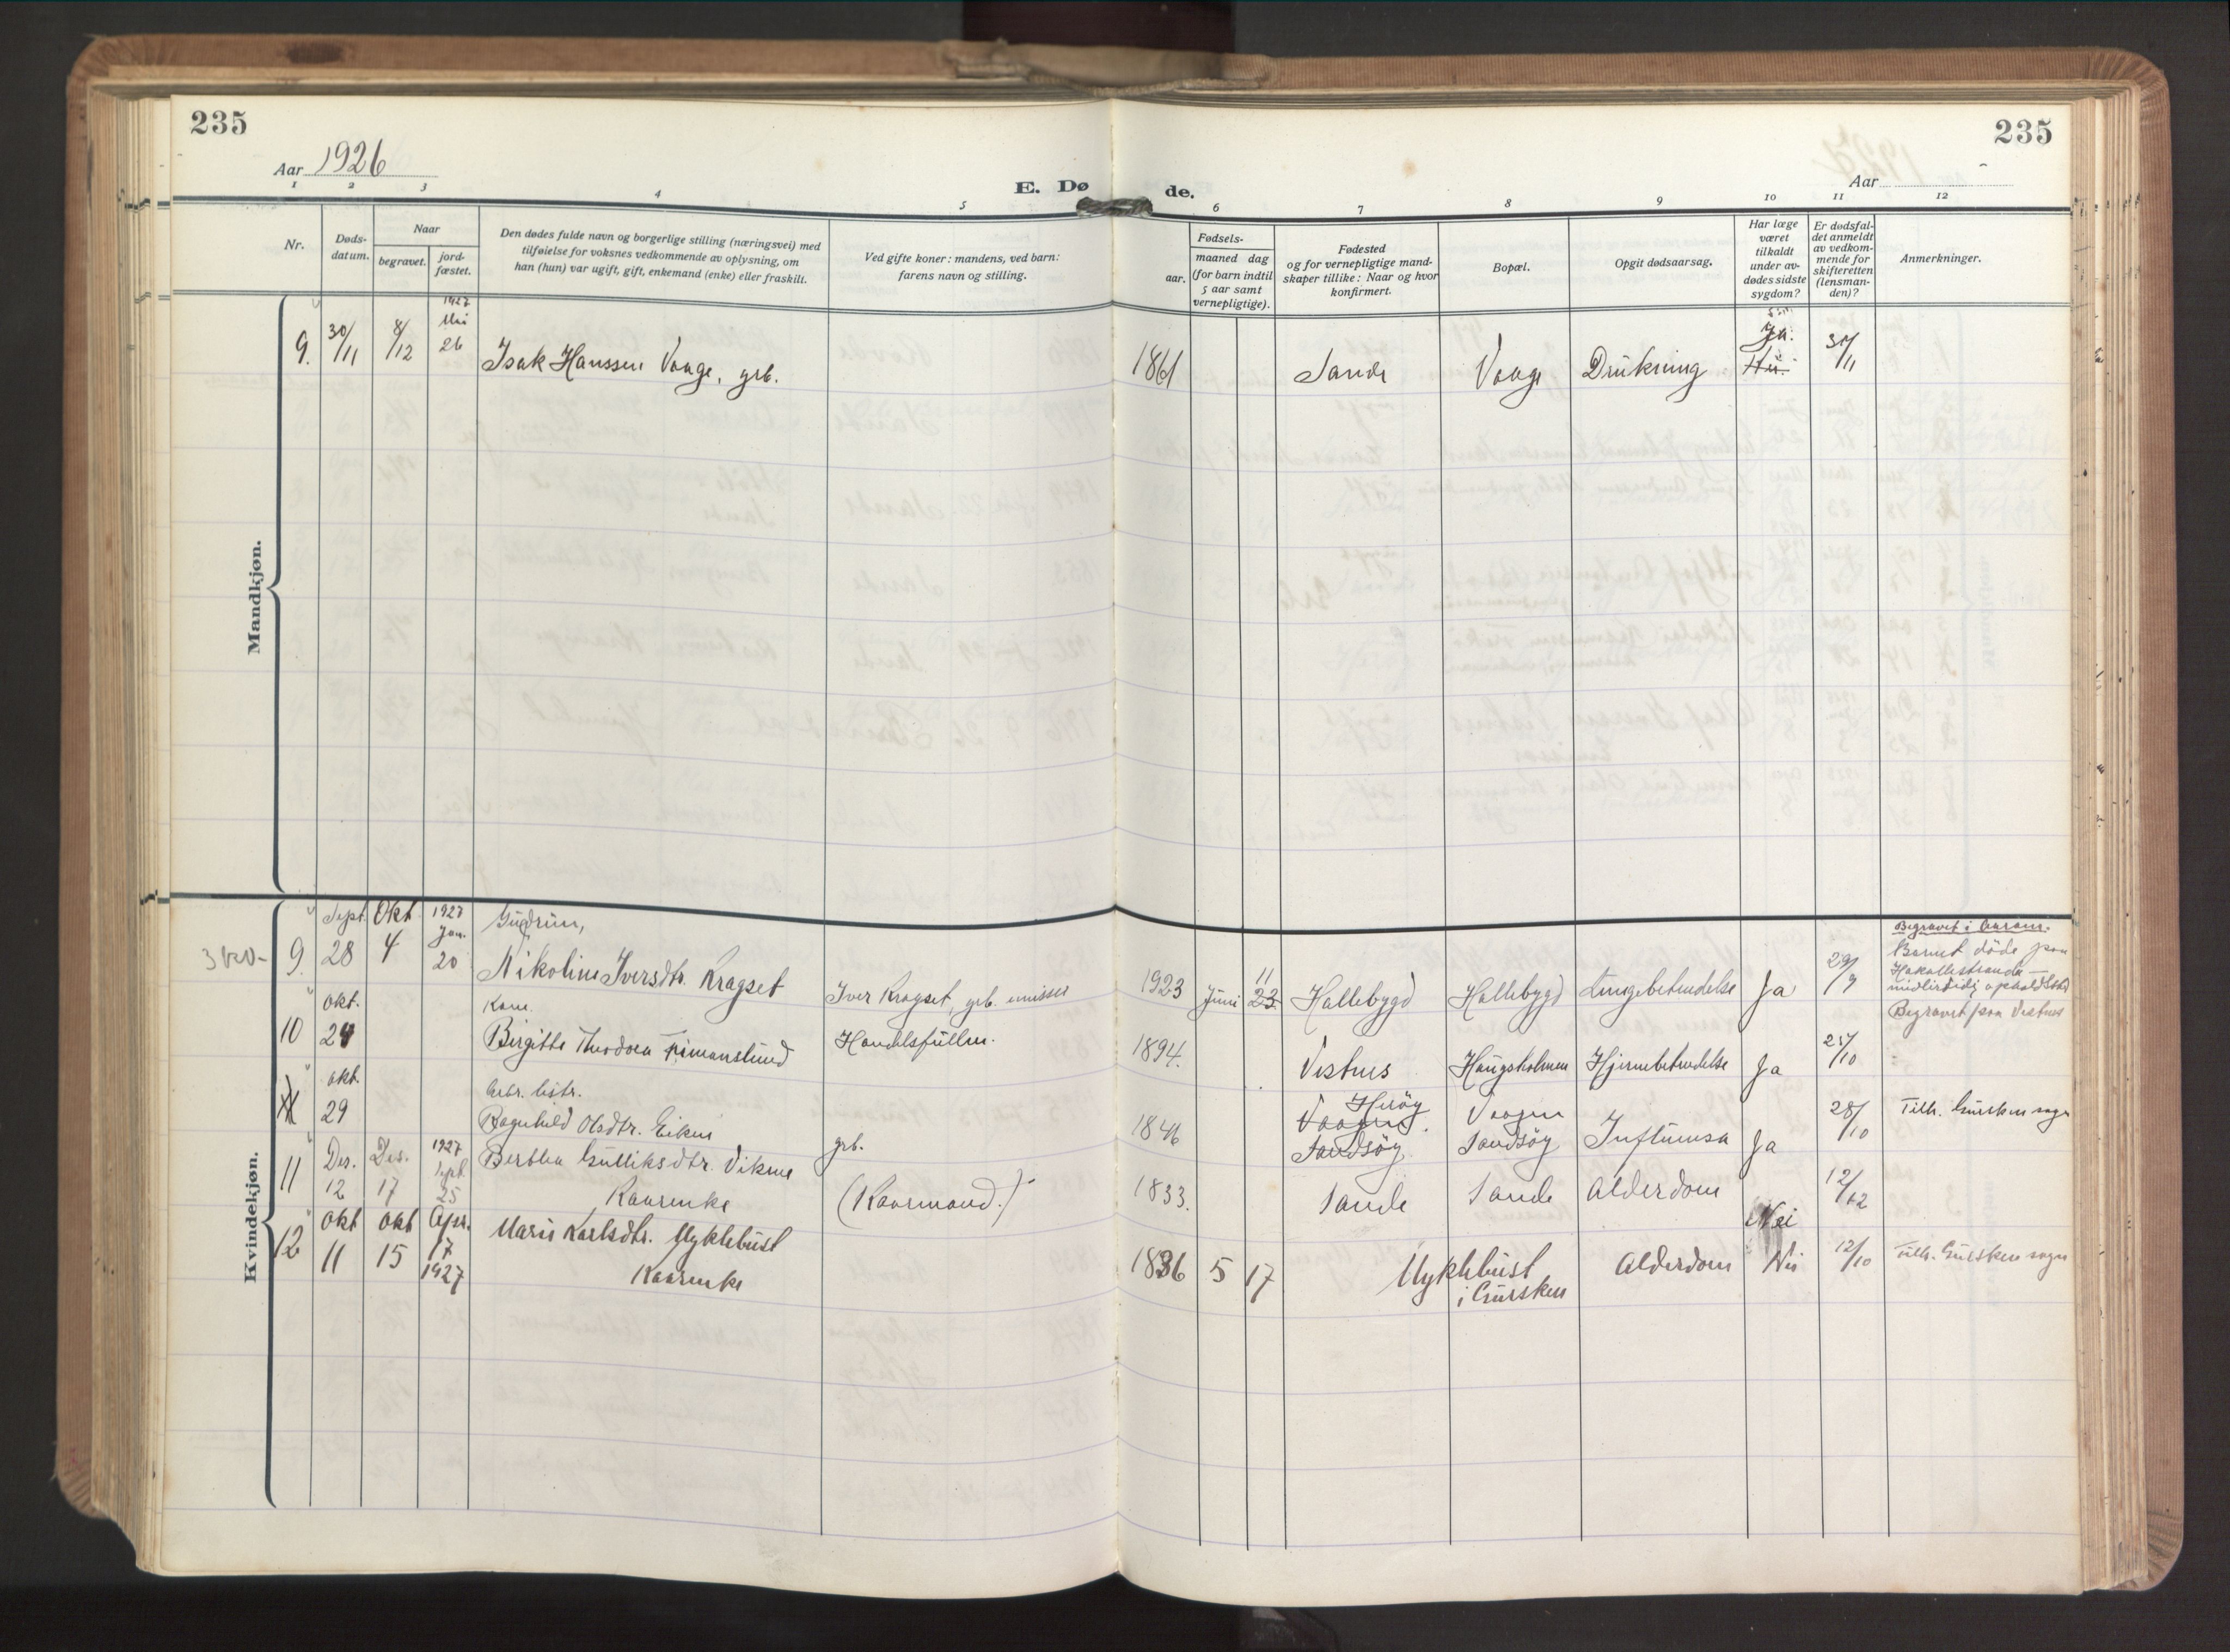 235
235
Aar 1926
Aar
E. Dø de.
1 2 3 4 5 6 7 8 9 10 11 12
Nr.
Døds-
datum.
Naar
begravet.
jord-
fæstet.
Den dødes fulde navn og borgerlige stilling (næringsvei) med
tilføielse for voksnes vedkommende av oplysning, om
han (hun) var ugift, gift, enkemand (enke) eller fraskilt.
Ved gifte koner: mandens, ved barn:
farens navn og stilling.
Fødsels-
aar.
maaned dag
(for barn indtil
5 aar samt
vernepligtige).
Fødested
og for vernepligtige mand-
skaper tillike: Naar og hvor
konfirmert.
Bopæl.
Opgit dødsaarsag.
Har læge
været
tilkaldt
under av-
dødes sidste
sygdom?
Er dødsfal-
det anmeldt
av vedkom-
mende for
skifteretten
(lensman-
den)?
Anmerkninger.
Mandkjøn.
9. 30/11 8/12 1927 Mai 26 Isak Hanssen Vaage, grb. 1861 Sande Vaage Drukning Ja. Nei. 30/11
Kvindekjøn.
9. Sept. 28 Okt. 4 1927 Jan. 20 Gudrun,
Nikoline Iversdtr. Kragset Iver Kragset, grb. emissær 1923 Juni 11 23 Hallebygd Hallebygd Lungebetendelse Ja 29/9
Begravet i Aaram.
Barnet døde paa
Hakallestranda —
midlertidig opholdssted
10 Okt. 24 Kone.
Birgitte Theodora Fimansund Handelsfullm. 1894. Vestnes Haugsholmen Hjernebetendelse Ja 25/10 Begravet paa Vestnes
11 Okt. 29 Arbr. listr.
Ragnhild Olsdtr. Eiken grb. 1846 Herøy Vaagen. Sandsøy Vaagen Sandsøy Influensa Ja 28/10 Tilh. Gursken sogn
11 Des. 12 Des. 17 1927 Sept. 25 Berthea Gulliksdtr. Vikene
Kaarenke (Kaarmand.) 1833. Sande Sande Alderdom Nei 12/12
12 Okt 11 Okt 15 Apr. 17 1927 Marie Karlsdtr. Myklebust
Kaarenke 1836 5 17 Myklebust
i Gursken Alderdom Nei 12/10 Tilh. Gursken sogn